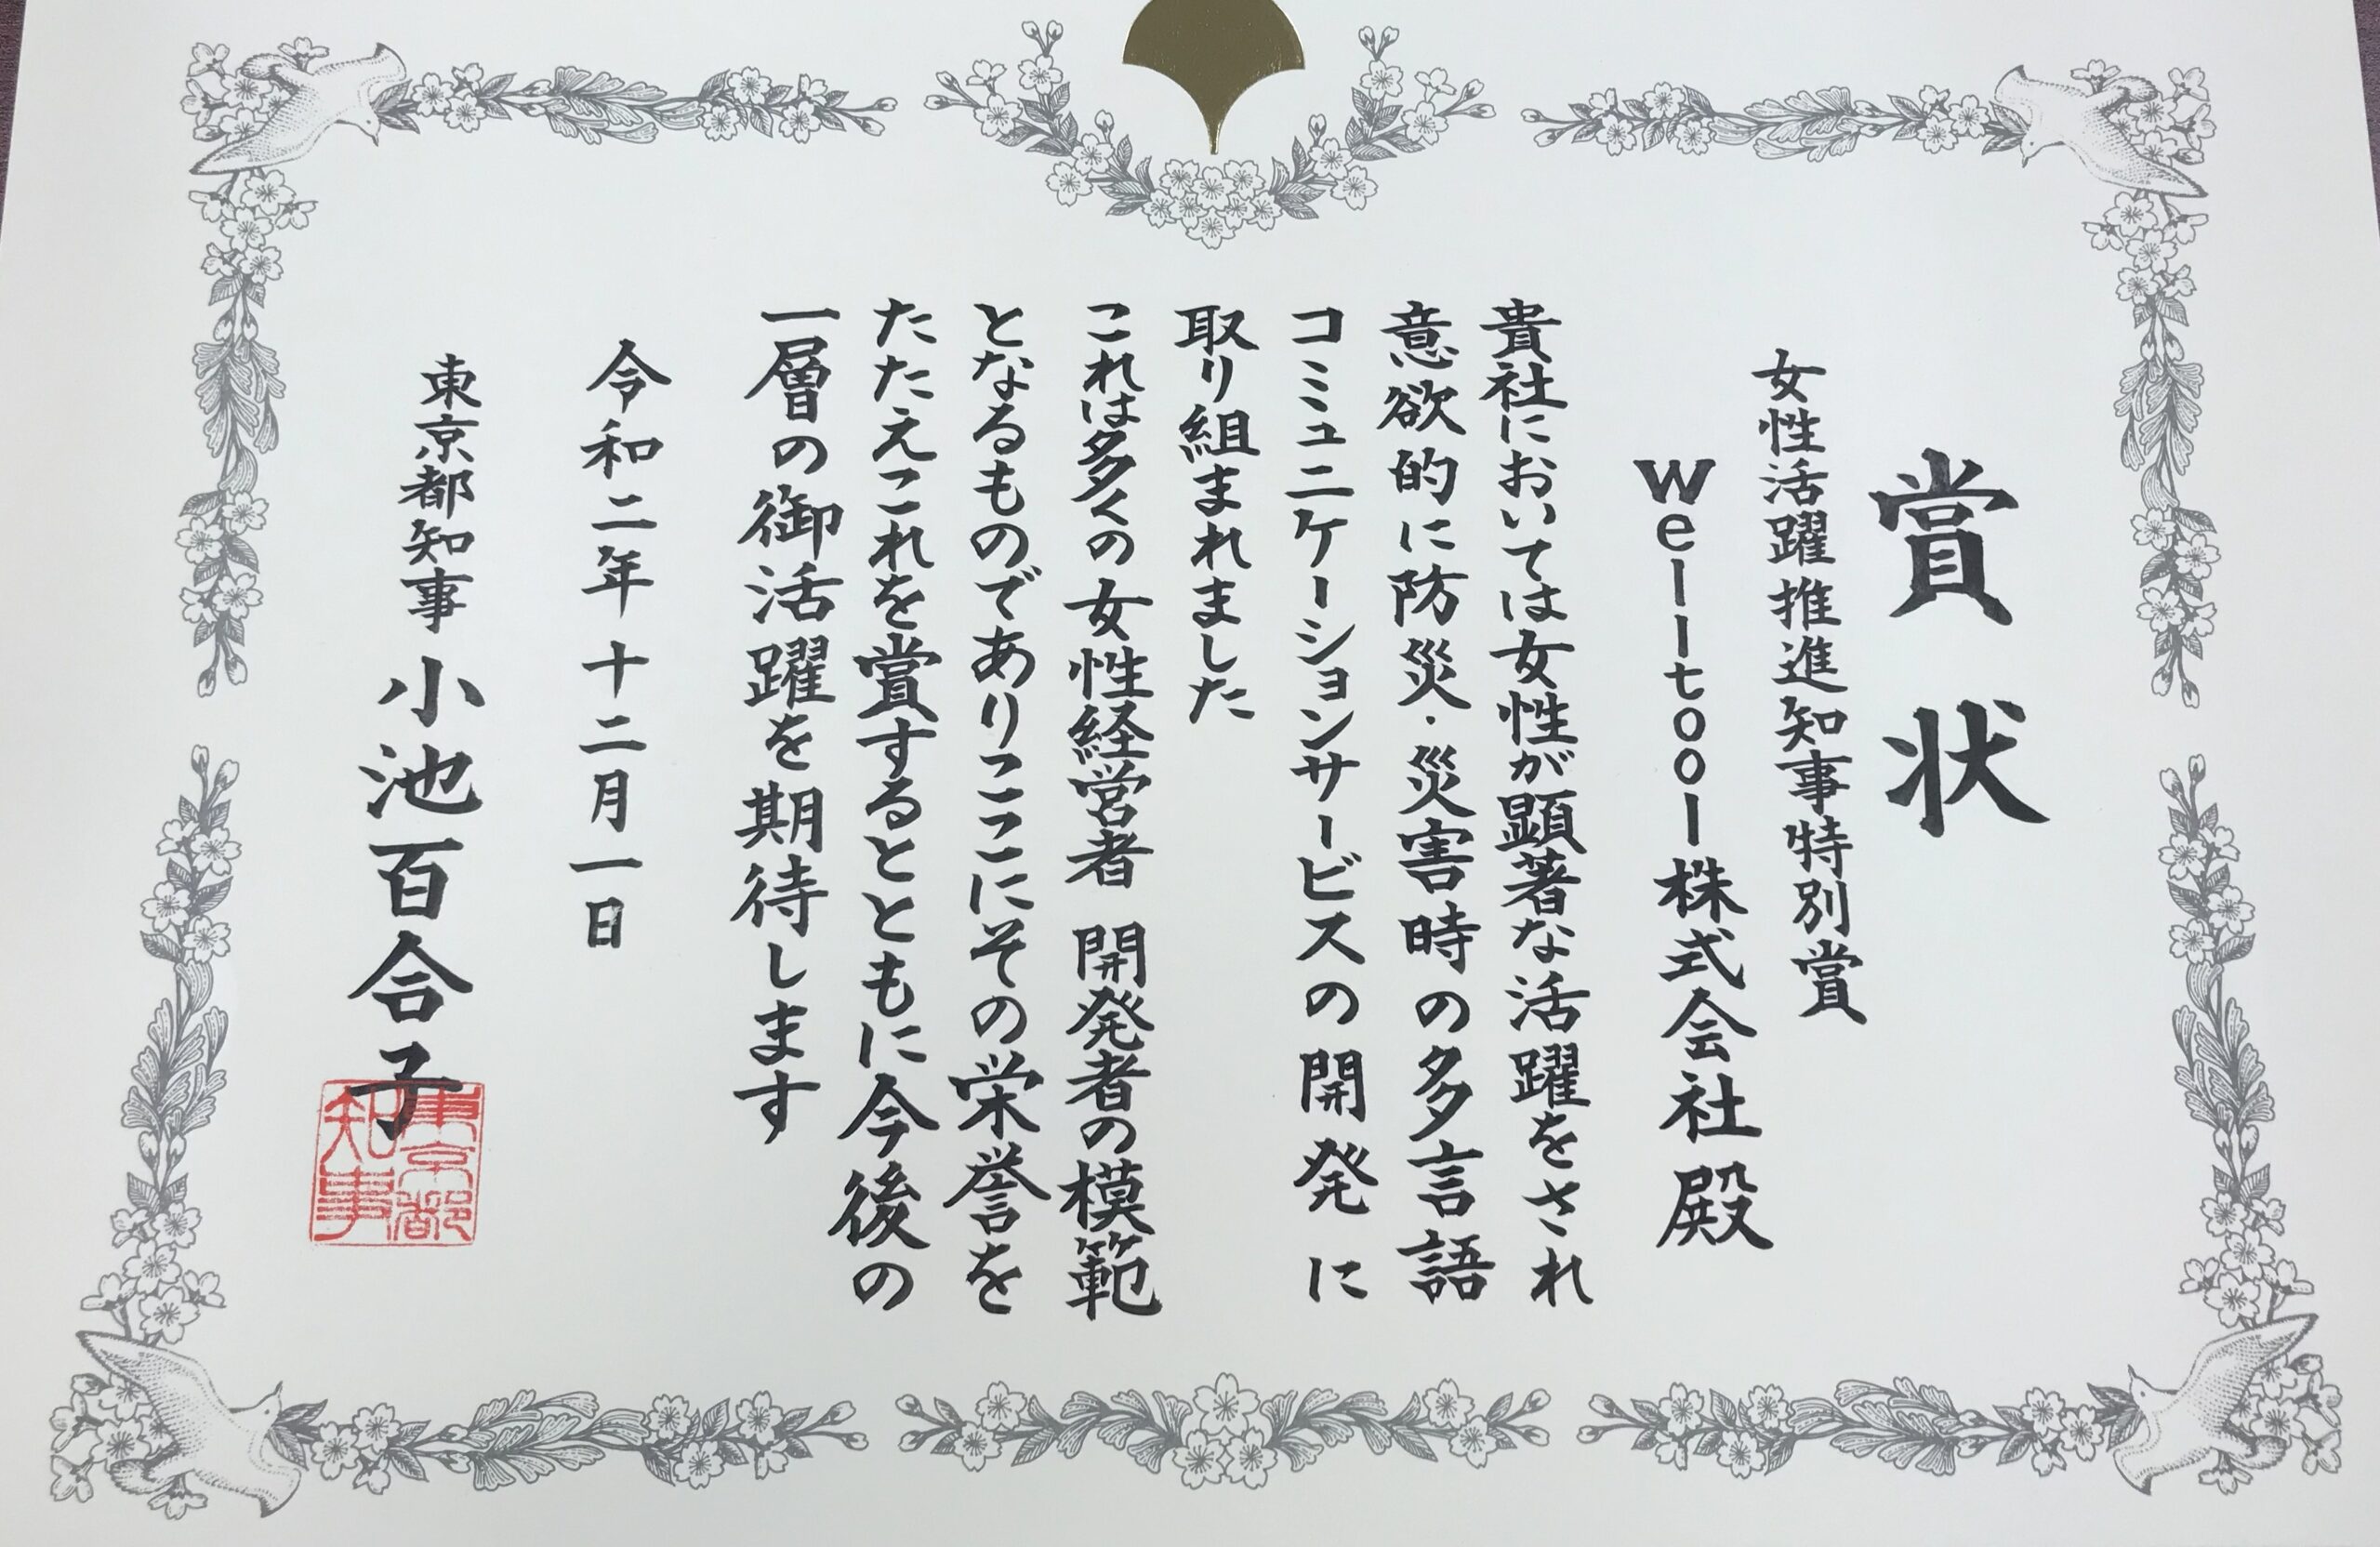 賞状
女性活躍推進知事特別賞
Welltool株式会社殿
貴社においては女性が顕著な活躍をされ
意欲的に防災・災害時の多言語
コミュニケーションサービスの開発に
取り組まれました
これは多くの女性経営者 開発者の模範
となるものでありここにその栄誉を
たたえこれを賞するとともに今後の
一層の御活躍を期待します
令和二年十二月一日
東京都知事 小池百合子
東京都
知事